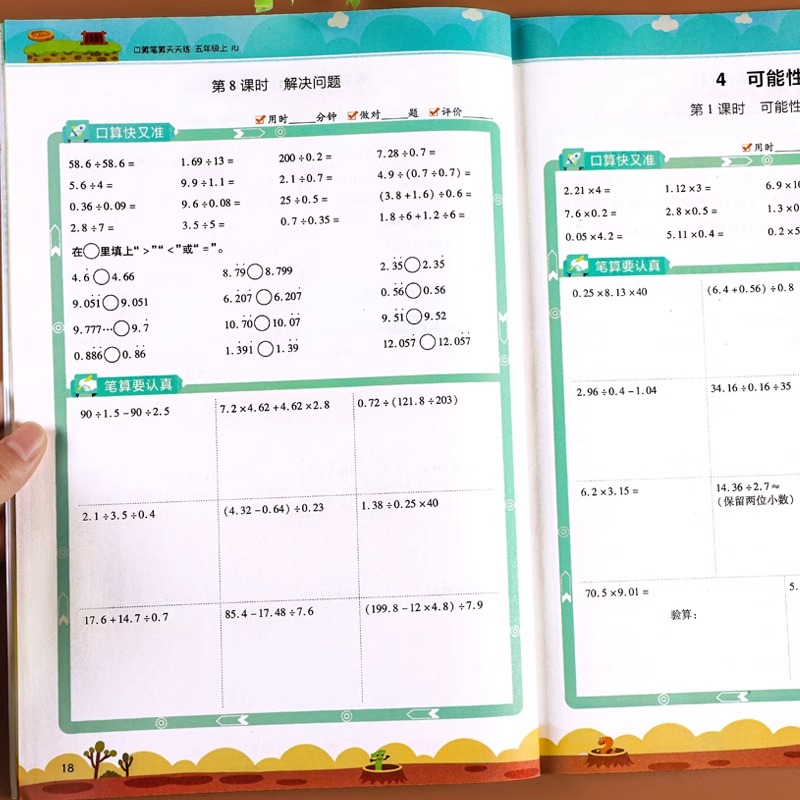 口算笔算天天练 五年级上 RJ
第8课时 解决问题
用时____分钟 做对____题 评价____
口算快又准
58.6÷58.6= 1.69÷13= 200÷0.2= 7.28÷0.7=
5.6÷4= 9.9÷1.1= 2.1÷0.7= 4.9÷(0.7÷0.7)=
0.36÷0.09= 9.6÷0.08= 25÷0.5= (3.8+1.6)÷0.6=
2.8÷7= 3.5÷5= 0.7÷0.35= 1.8÷6+1.2÷6=
在○里填上“>”“<”或“=”。
4.6̇○4.66 8.7̇9̇○8.799 2.3̇5̇○2.35̇
9.05̇1̇○9.051 6.2̇07̇○6.207̇ 0.5̇6̇○0.56
9.777…○9.7̇ 10.7̇0̇○10.0̇7̇ 9.5̇1̇○9.52
0.88̇6̇○0.8̇6̇ 1.3̇91̇○1.3̇9̇ 12.057̇○12.05̇7̇
笔算要认真
90÷1.5-90÷2.5 7.2×4.62+4.62×2.8 0.72÷(121.8÷203)
2.1÷3.5÷0.4 (4.32-0.64)÷0.23 1.38÷0.25×40
17.6+14.7÷0.7 85.4-17.48÷7.6 (199.8-12×4.8)÷7.9
18
4 可能性
第1课时 可能性
用时____
口算快又准
2.21×4= 1.12×3= 6.9×10
7.6×0.2= 2.8×0.5= 1.3×0
0.05×4.2= 5.11×0.4= 0.2×5
笔算要认真
0.25×8.13×40 (6.4+0.56)÷0.8
2.96÷0.4-1.04 34.16÷0.16÷35
6.2×3.15= 14.36÷2.7≈
(保留两位小数)
70.5×9.01= 5.
验算：